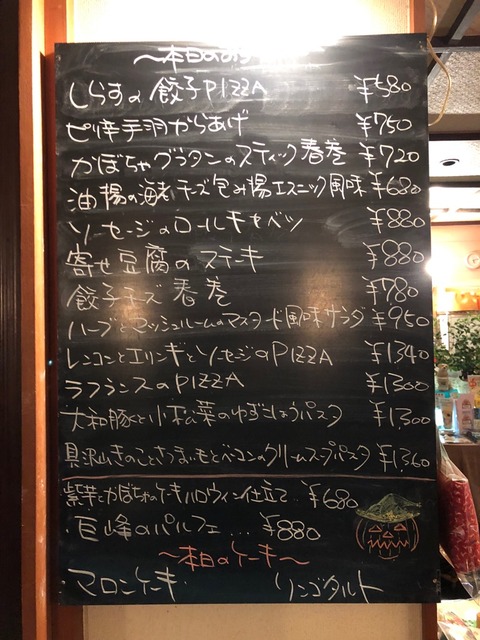 ～本日のお
しらすの餃子PIZZA ¥580
ピリ辛手羽からあげ ¥750
かぼちゃグラタンのスティック春巻 ¥720
油揚の海老チーズ包み揚エスニック風味 ¥680
ソーセージのロールキャベツ ¥880
寄せ豆腐のステーキ ¥880
餃子チーズ春巻 ¥780
ハーブとマッシュルームのマスタード風味サラダ ¥950
レンコンとエリンギとソーセージのPIZZA ¥1340
ラフランスのPIZZA ¥1300
大和豚と小松菜のゆずこしょうパスタ ¥1,300
具沢山きのことさつまいもとベーコンのクリームスープパスタ ¥1,360
紫芋とかぼちゃのケーキハロウィン仕立て… ¥680
巨峰のパルフェ… ¥880
～本日のケーキ～
マロンケーキ リンゴタルト